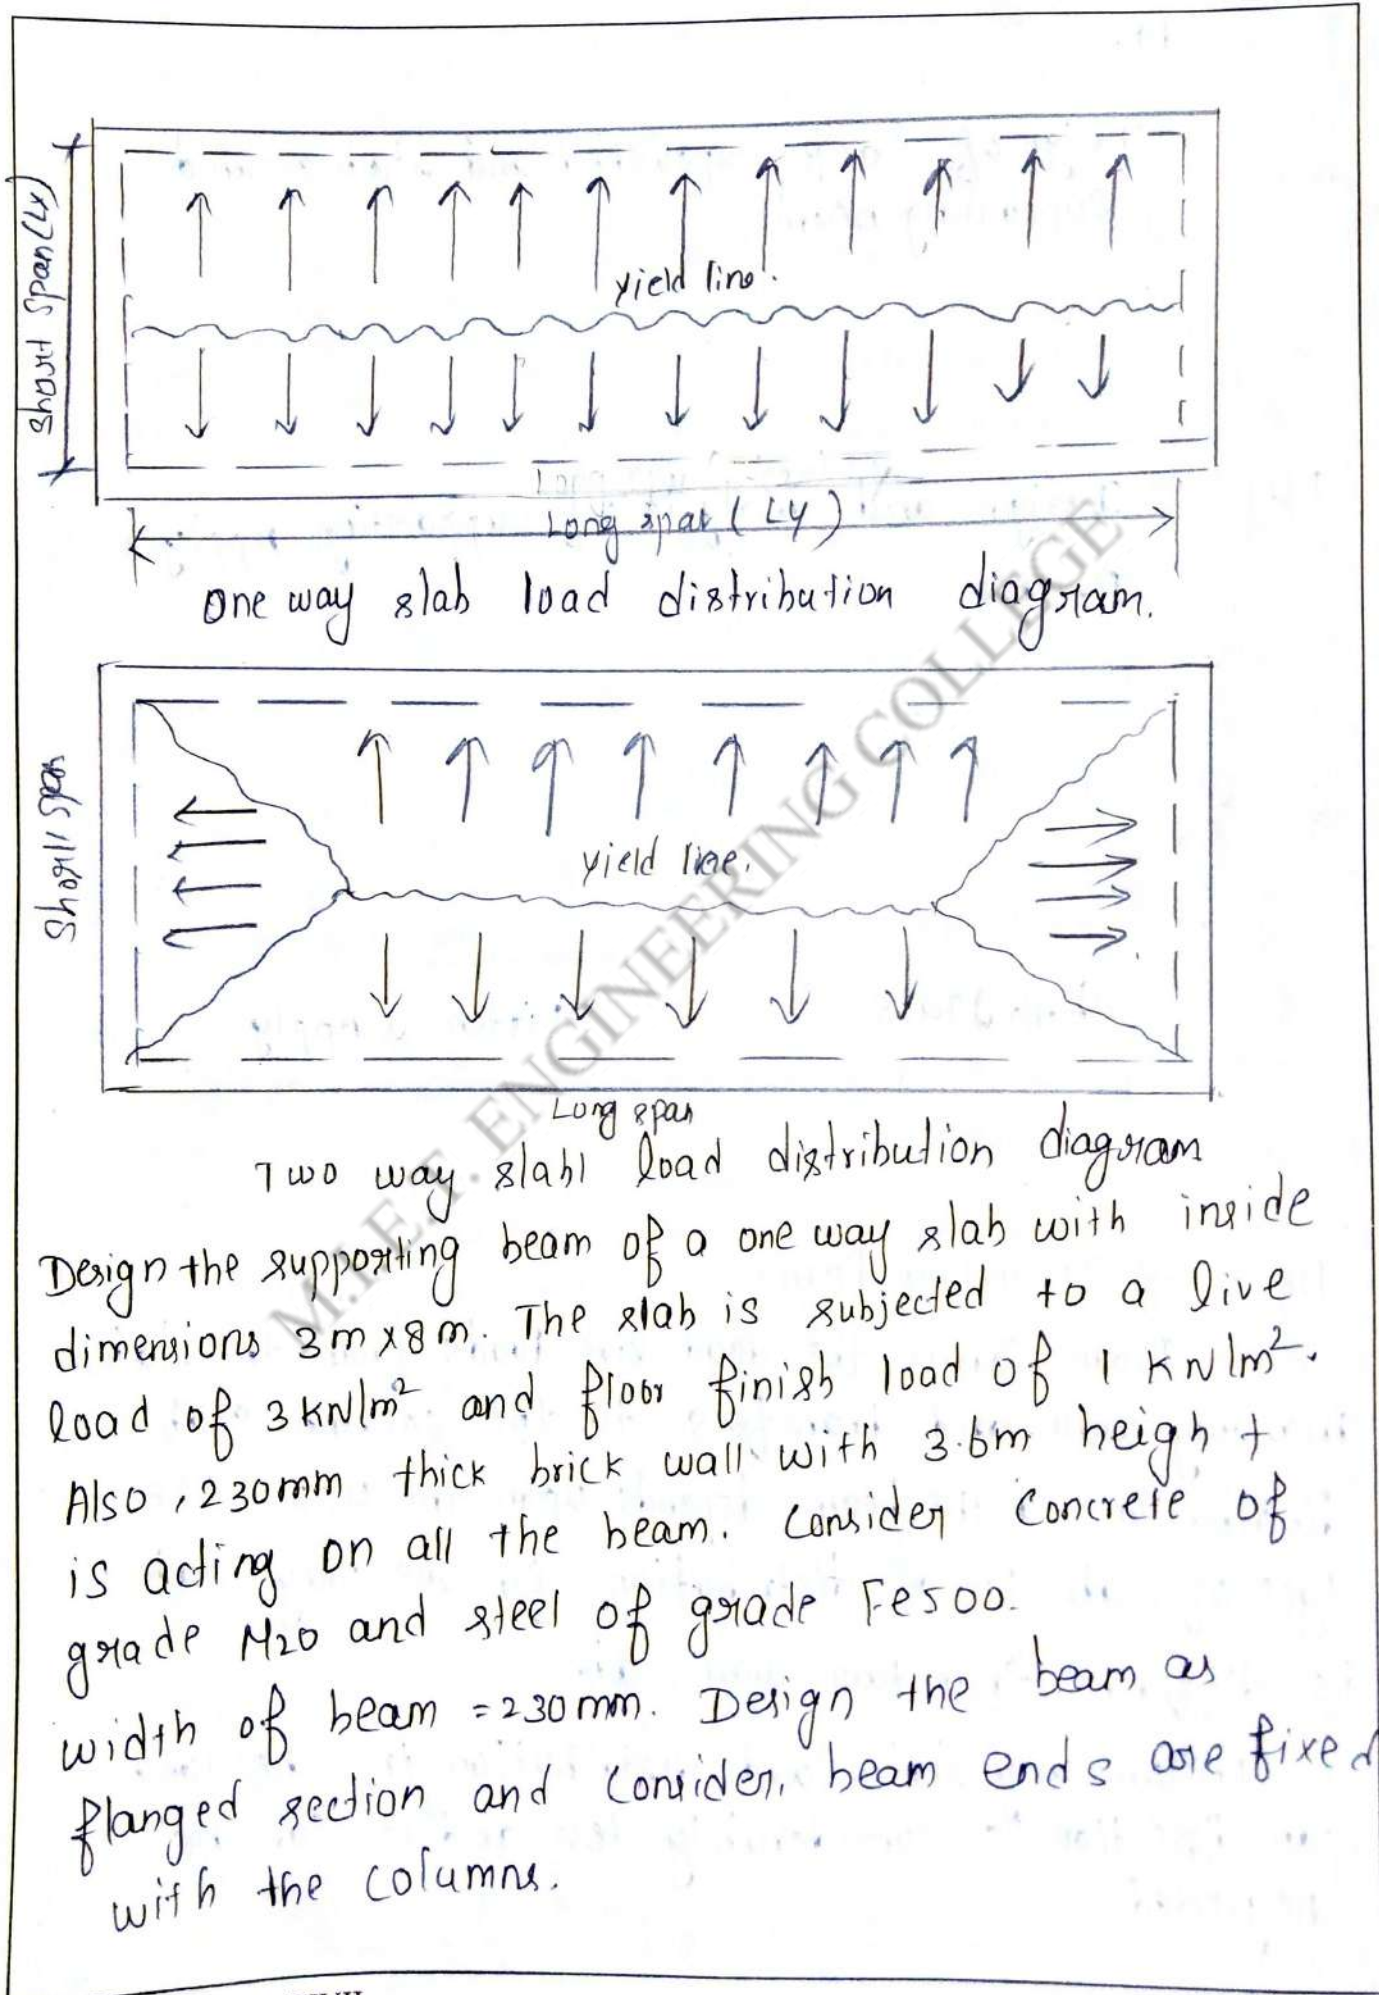 Short Span (Lx)
yield line.
Long span (Ly)
one way slab load distribution diagram.
Short Span
yield line.
Long span
Two way slab load distribution diagram
Design the supporting beam of a one way slab with inside
dimensions 3m x 8m. The slab is subjected to a live
load of 3 kN/m² and floor finish load of 1 kN/m².
Also, 230mm thick brick wall with 3.6m height
is acting on all the beam. Consider Concrete of
grade M20 and steel of grade Fe500.
width of beam = 230mm. Design the beam as
flanged section and Consider, beam ends are fixed
with the columns.
M.I.E.T. ENGINEERING COLLEGE